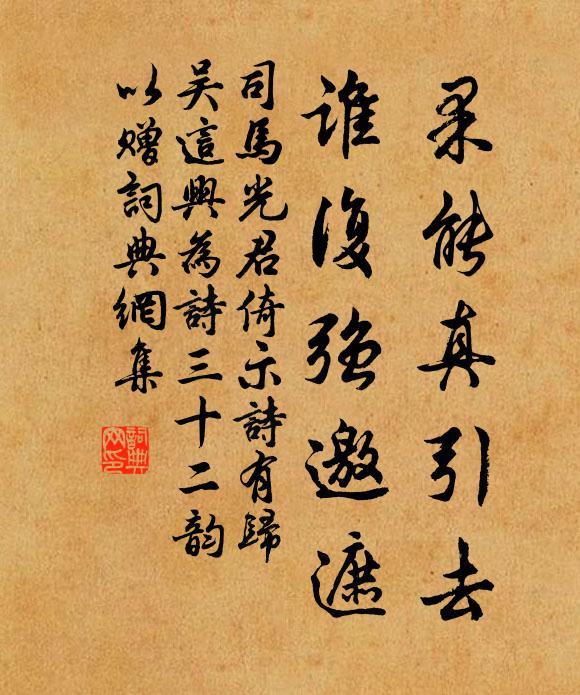 果能真引去
谁復强邀遮
司馬光君倚示詩有歸
吴這興為詩三十二韵
以赠詞典網集
詞典網印